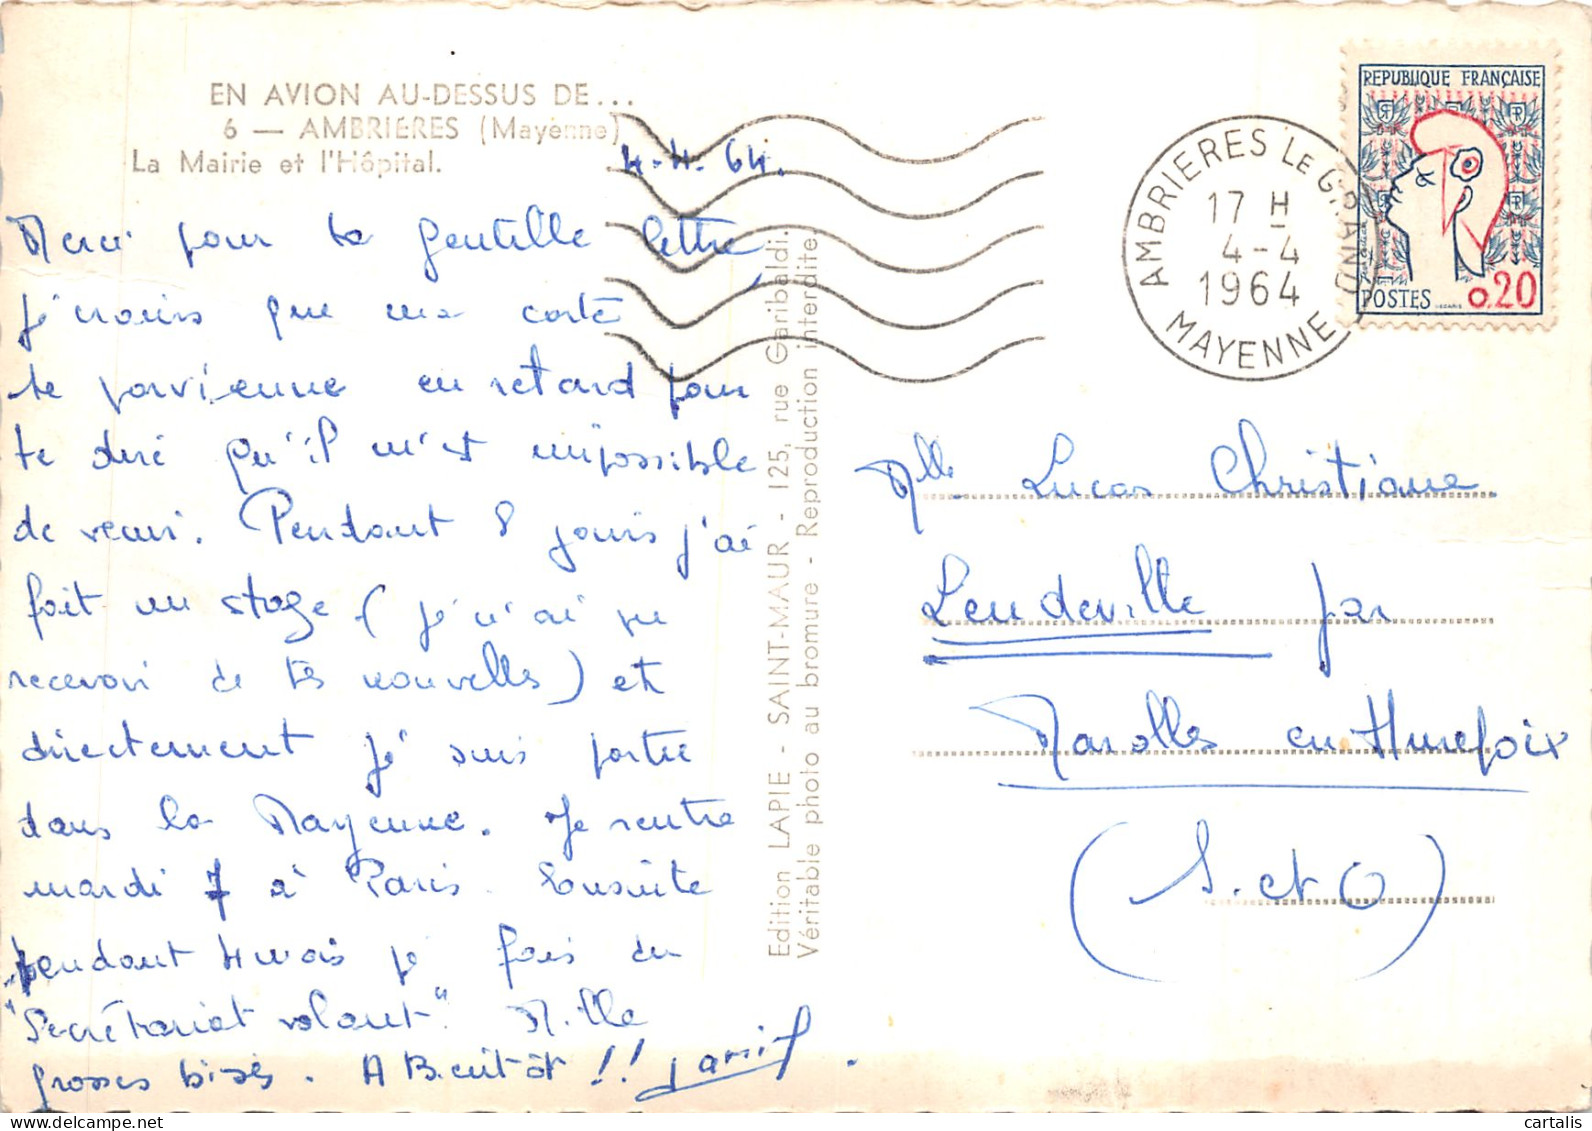 EN AVION AU-DESSUS DE...
6 — AMBRIERES (Mayenne)
La Mairie et l'Hôpital.
4-4-64.
Merci pour ta gentille lettre,
j'crains que ma carte
te parvienne en retard pour
te dire qu'il m'est impossible
de venir. Pendant 8 jours j'ai
fait un stage (je n'ai pu
recevoir de tes nouvelles) et
directement je suis partie
dans la Mayenne. Je rentre
mardi 7 à Paris. Ensuite
pendant 4 mois je fais du
"Secrétariat volant". Mille
grosses bises. A Bientôt !!
Edition LAPIE - SAINT-MAUR - 125, rue Garibaldi.
Véritable photo au bromure - Reproduction interdite
AMBRIERES LE GRAND
17 H
4-4
1964
MAYENNE
REPUBLIQUE FRANÇAISE
POSTES 0,20
Mlle Lucas Christiane
Leudeville par
Marolles en Hurepoix
(S. et O)
cartalis